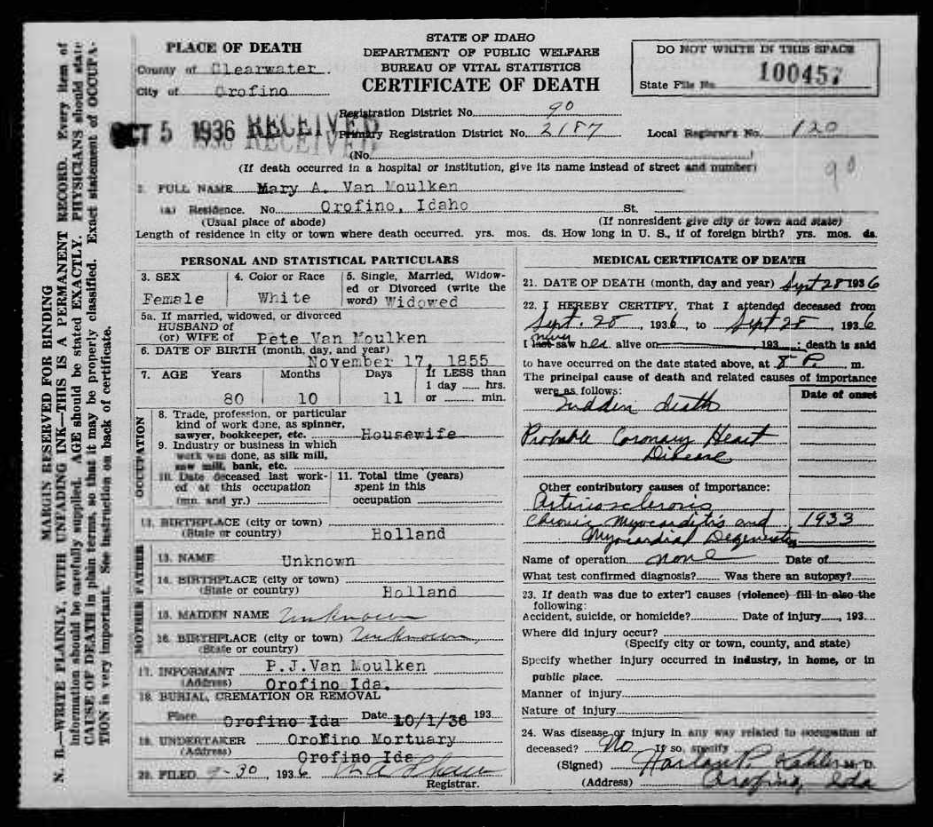 STATE OF IDAHO
DEPARTMENT OF PUBLIC WELFARE
BUREAU OF VITAL STATISTICS
CERTIFICATE OF DEATH
PLACE OF DEATH
County of Clearwater
City of Orofino
DO NOT WRITE IN THIS SPACE
State File No. 100457
OCT 5 1936 RECEIVED
Registration District No. 90
Primary Registration District No. 2187 Local Registrar's No. 120
(No.
(If death occurred in a hospital or institution, give its name instead of street and number)
90
2. FULL NAME Mary A. Van Moulken
(a) Residence. No. Orofino, Idaho St.
(Usual place of abode) (If nonresident give city or town and state)
Length of residence in city or town where death occurred. yrs. mos. ds. How long in U. S., if of foreign birth? yrs. mos. ds.
MARGIN RESERVED FOR BINDING
N. B.—WRITE PLAINLY, WITH UNFADING INK—THIS IS A PERMANENT RECORD. Every item of
information should be carefully supplied. AGE should be stated EXACTLY. PHYSICIANS should state
CAUSE OF DEATH in plain terms, so that it may be properly classified. Exact statement of OCCUPA-
TION is very important. See instruction on back of certificate.
PERSONAL AND STATISTICAL PARTICULARS
3. SEX Female
4. Color or Race White
5. Single, Married, Widow-
ed or Divorced (write the
word) Widowed
5a. If married, widowed, or divorced
HUSBAND of
(or) WIFE of Pete Van Moulken
6. DATE OF BIRTH (month, day, and year)
November 17, 1855
7. AGE Years Months Days If LESS than
1 day ..... hrs.
80 10 11 or ..... min.
OCCUPATION
8. Trade, profession, or particular
kind of work done, as spinner,
sawyer, bookkeeper, etc. Housewife
9. Industry or business in which
work was done, as silk mill,
saw mill, bank, etc.
10. Date deceased last work-
ed at this occupation
(mo. and yr.)
11. Total time (years)
spent in this
occupation
12. BIRTHPLACE (city or town)
(State or country) Holland
FATHER
13. NAME Unknown
14. BIRTHPLACE (city or town)
(State or country) Holland
MOTHER
15. MAIDEN NAME Unknown
16. BIRTHPLACE (city or town) Unknown
(State or country)
17. INFORMANT P.J.Van Moulken
(Address) Orofino Ida.
18. BURIAL, CREMATION OR REMOVAL
Place Orofino Ida Date 10/1/36 193
19. UNDERTAKER Orofino Mortuary
(Address) Orofino Ida
20. FILED 9-30, 1936
Registrar.
MEDICAL CERTIFICATE OF DEATH
21. DATE OF DEATH (month, day and year) Sept 28 1936
22. I HEREBY CERTIFY, That I attended deceased from
Sept. 28, 1936, to Sept 28, 1936
I last saw her alive on 193 ; death is said
never
to have occurred on the date stated above, at 8 P. m.
The principal cause of death and related causes of importance
were as follows: Date of onset
Sudden death
Probable Coronary Heart
Disease
Other contributory causes of importance:
Arteriosclerosis
Chronic Myocarditis and 1933
Myocardial Degeneration
Name of operation none Date of
What test confirmed diagnosis? Was there an autopsy?
23. If death was due to exter'l causes (violence) fill in also the
following:
Accident, suicide, or homicide? Date of injury, 193
Where did injury occur?
(Specify city or town, county, and state)
Specify whether injury occurred in industry, in home, or in
public place.
Manner of injury
Nature of injury
24. Was disease or injury in any way related to occupation of
deceased? No If so, specify
(Signed) Harlan P. Kahler M. D.
(Address) Orofino, Ida